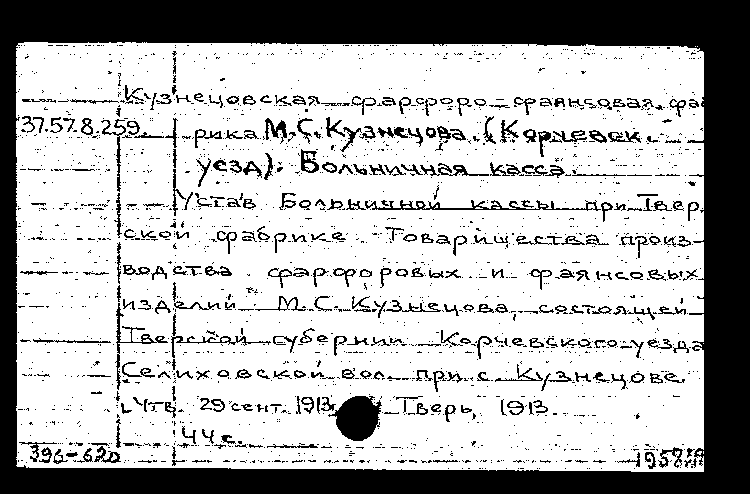 Кузнецовская фарфоро-фаянсовая фаб
37.57.8.259. рика М.С.Кузнецова. (Корчевск.
уезд). Больничная касса.
Устав Больничной кассы при Твер
ской фабрике Товарищества произ-
водства фарфоровых и фаянсовых
изделий М.С.Кузнецова, состоящей
Тверской губернии Корчевского уезда
Селиховской вол. при с. Кузнецове.
Утв. 29 сент. 1913 Тверь, 1913.
44 с.
396-62о 1958